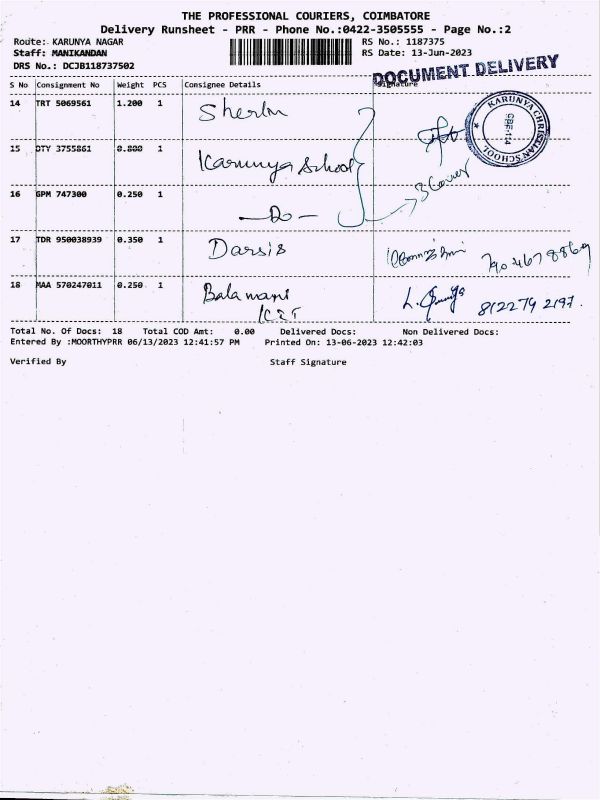 THE PROFESSIONAL COURIERS, COIMBATORE
Delivery Runsheet - PRR - Phone No.:0422-3505555 - Page No.:2
Route:- KARUNYA NAGAR RS No.: 1187375
Staff: MANIKANDAN RS Date: 13-Jun-2023
DRS No.: DCJB118737502
DOCUMENT DELIVERY
S No Consignment No Weight PCS Consignee Details Signature
14 TRT 5069561 1.200 1 Sherlin
KARUNYA CHRISTIAN SCHOOL
CBE-114
15 DTY 3755861 0.800 1 Karunya School
3 Cover
16 GPM 747300 0.250 1 — Do —
17 TDR 950038939 0.350 1 Darsis
18 MAA 570247011 0.250 1 Balamani 8122792197.
Total No. Of Docs: 18 Total COD Amt: 0.00 Delivered Docs: Non Delivered Docs:
Entered By :MOORTHYPRR 06/13/2023 12:41:57 PM Printed On: 13-06-2023 12:42:03
Verified By Staff Signature